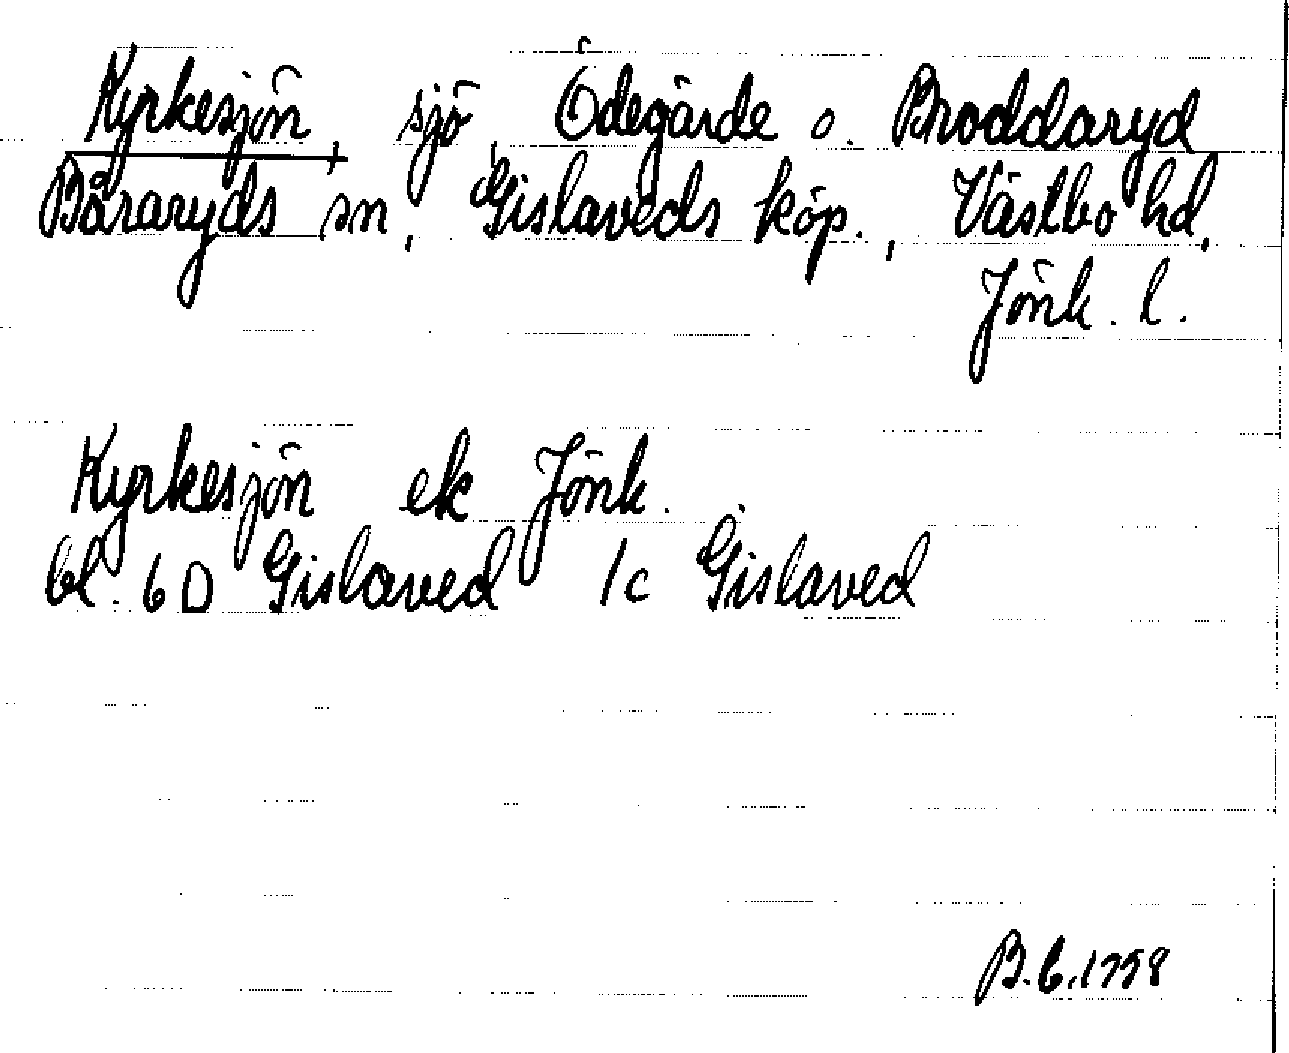 Kyrkesjön, sjö, Ödegärde o. Broddaryd
Båraryds sn, Gislaveds köp., Västbo hd,
Jönk. l.
Kyrkesjön ek Jönk.
bl. 6D Gislaved 1c Gislaved
B.6.1758